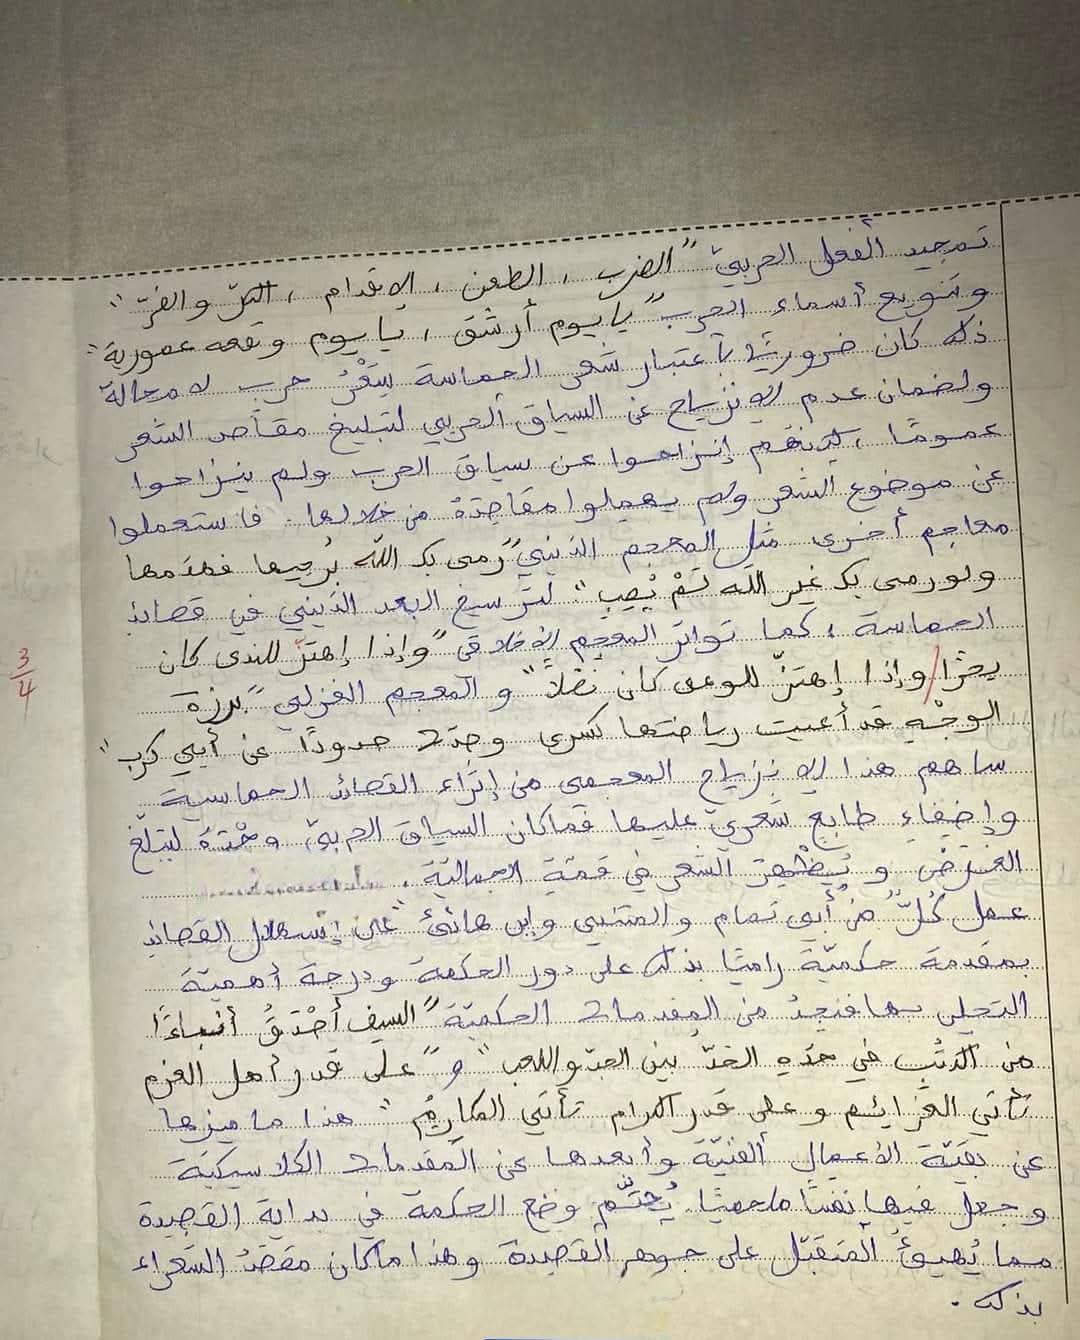 تمجيد الفعل الحربيّ "الضرب، الطعن، الإقدام، الكرّ والفرّ"
وتنويع أسماء الحرب "يا يوم أرشق، يا يوم وقعه عمورية"
ذلك كان ضروريّا بإعتبار شعر الحماسة شِعْرُ حرب لا محالة
ولضمان عدم الإنزياح عن السياق الحربي لتبليغ مقاصد الشعر
عمومًا، لكنهم إنزاحوا عن سياق الحرب ولم ينزاحوا
عن موضوع الشعر ولم يهملوا مقاصِدَهُ من خلالها. فاستعملوا
معاجم أخرى مثل المعجم الدّيني "رمى بك الله بُرجيها فهدّمها
ولو رمى بك غير الله لَمْ يُصِبِ". لترسيخ البعد الدّيني في قصائد
الحماسة، كما تواتر المعجم الأخلاقي "وإذا إهتزّ للندى كان
بحرًا/وإذا إهتزّ للوغى كان نصْلاً" و المعجم الغزلي "برزة
الوجْهِ قد أعيت رياضتها كسرى وصدّت صدودًا عن أبي كرب"
ساهم هذا الإنزياح المعجمي من إثراء القصائد الحماسية
وإضفاء طابع شعريّ عليها فما كان السياق الحربيّ وحْدَهُ ليُبلّغ
الغرض و يُظْهِرَ الشعر في قمّة الجماليّة.
عمل كُلٌّ من أبي تمام والمتنبي وابن هانئ على إستهلال القصائد
بمقدمة حكميّة راميًا بذلك على دور الحكمة ودرجة أهميّة
التحلي بها فنجدُ من المقدمات الحكميّة "السيف أصْدَقُ أنباءًا
من الكتُب في حدّهِ الحدّ بين الجدّ واللعب" و"على قدر أهل العزم
تأتي العزائم وعلى قدر الكرام تأتي المكارِمُ". هذا ما ميزها
عن بقيّة الأعمال الفنيّة وأبعدها عن المقدمات الكلاسيكيّة
وجعل فيها نفسًا ملحميّا يُحتّم وضع الحكمة في بداية القصيدة
مما يُهيئُ المتقبّل على جوهر القصيدة وهذا ما كان مقصدُ الشعراء
بذلك.
3/4